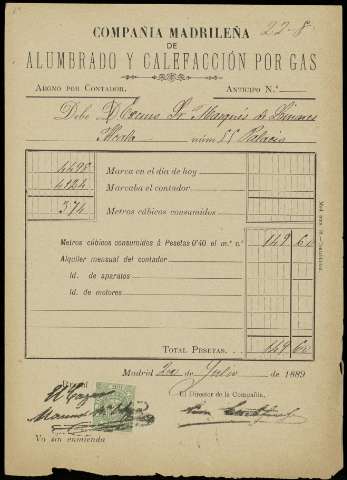 22-8
COMPAÑIA MADRILEÑA
DE
ALUMBRADO Y CALEFACCIÓN POR GAS
ABONO POR CONTADOR.
ANTICIPO N.º
Debe D Excmo Sr Marqués de Linares
núm Palacio
4498 MARCA EN EL DIA DE HOY
4124 MARCABA EL CONTADOR
374 METROS CÚBICOS CONSUMIDOS
METROS CÚBICOS CONSUMIDOS Á PESETAS 0'40 EL M.³ C.º 149 60
ALQUILER MENSUAL DEL CONTADOR
ID. DE APARATOS
ID. DE MOTORES
TOTAL PESETAS. 149 60
Madrid de Julio de 1889
Recibí
El Director de la Compañía,
El Cajero
Va sin enmienda